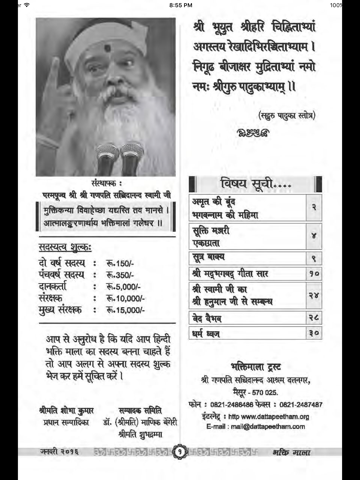 8:55 PM
100%
श्री भूयुत श्रीहरि चिह्निताभ्यां
अगस्तय रेखादिभिरञ्चिताभ्याम ।
निगूढ बीजाक्षर मुद्रिताभ्यां नमो
नमः श्रीगुरु पादुकाभ्याम् ।।
(सद्गुरु पादुका स्तोत्र)
संस्थापक :
परमपूज्य श्री श्री गणपति सच्चिदानन्द स्वामी जी
मुक्तिकन्या विवाहेच्छा यद्यस्ति तव मानसे ।
आत्मालङ्करणार्थाय भक्तिमालां गलेधर ।।
सदस्यत्व शुल्क:
दो वर्ष सदस्य : रू.150/-
पंचवर्ष सदस्य : रू.350/-
दानकर्ता : रू.5,000/-
संरक्षक : रू.10,000/-
मुख्य संरक्षक : रू.15,000/-
आप से अनुरोध है कि यदि आप हिन्दी
भक्ति माला का सदस्य बनना चाहते हैं
तो आप अलग से अपना सदस्य शुल्क
भेज कर हमें सूचित करें ।
श्रीमति शोभा कुमार
प्रधान सम्पादिका
सम्पादक समिति
डॉ. (श्रीमति) माणिक बेंगेरी
श्रीमति शुभद्रम्मा
विषय सूची....
अमृत की बूंद
भगवन्नाम की महिमा २
सूक्ति मञ्जरी
एकाग्रता ४
सूत्र वाक्य ९
श्री मद्भगवद् गीता सार १०
श्री स्वामी जी का
श्री हनुमान जी से सम्बन्ध २४
वेद वैभव २८
धर्म ध्वज ३०
भक्तिमाला ट्रस्ट
श्री गणपति सच्चिदानन्द आश्रम दत्तनगर,
मैसूर - 570 025.
फोन : 0821-2486486 फेक्स : 0821-2487487
इंटरनेट् : http www.dattapeetham.org
E-mail : mail@dattapeetham.com
जनवरी २०१६
१
भक्ति माला